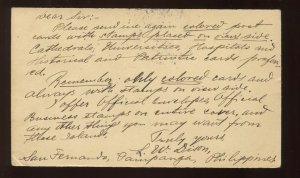 Dear Sir:-
Please send me again colored post
cards with stamps placed on view side.
Cathedrals, Universities, Hospitals and
Historical and Patriotic cards prefer-
ed.
Remember: only colored cards and
always with stamps on view side.
I offer Official Envelopes Official
Business stamps on entire cover, and
any other thing you may want from
these Islands.
Truly yours
San Fernando, Pampanga, Philippines